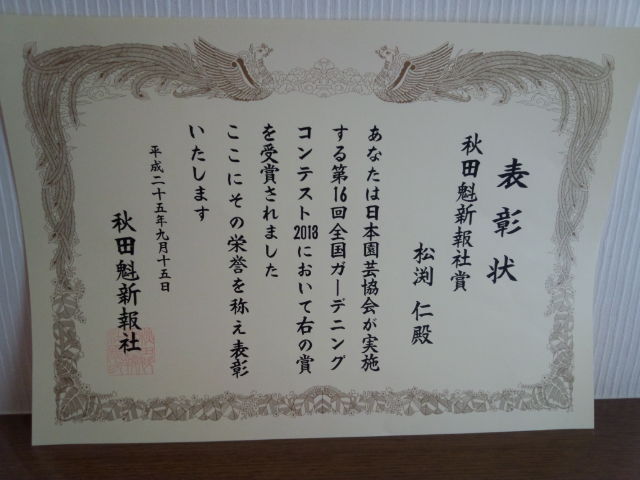 表彰状
秋田魁新報社賞
松渕 仁殿
あなたは日本園芸協会が実施
する第16回全国ガーデニング
コンテスト2013において右の賞
を受賞されました
ここにその栄誉を称え表彰
いたします
平成二十五年九月十五日
秋田魁新報社